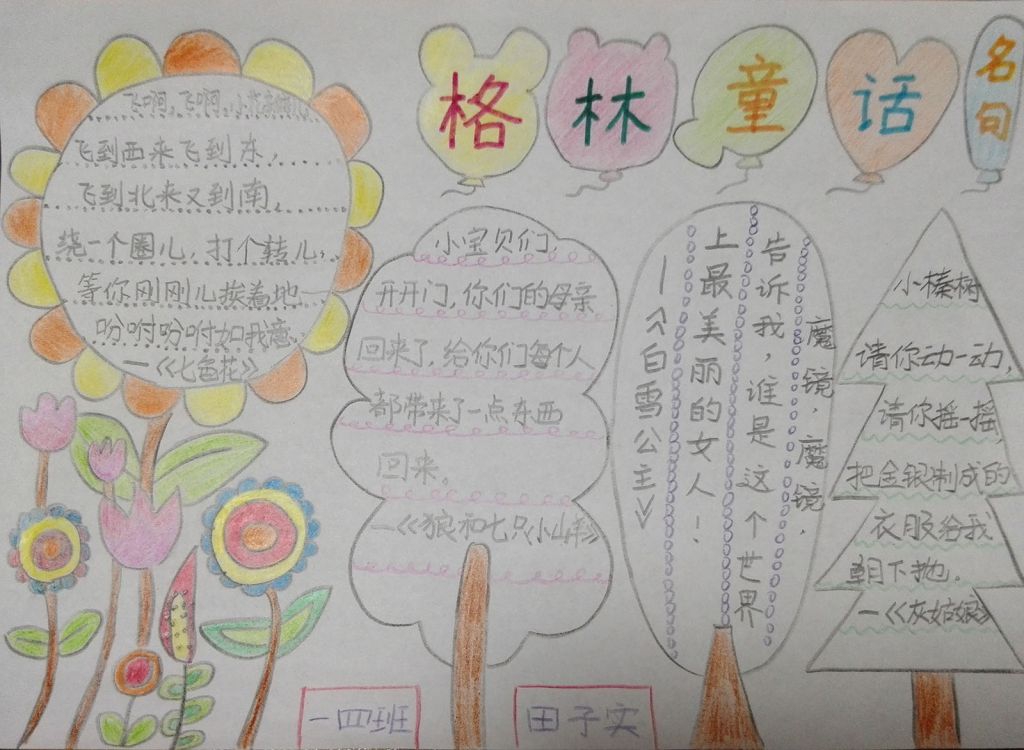 格林童话名句
飞啊,飞啊,小
飞到西来飞到东,
飞到北来又到南,
绕一个圈儿,打个转儿,
等你刚刚儿挨着地—
吩咐吩咐如我意
—《七色花》
小宝贝们,
开开门,你们的母亲
回来了,给你们每个人
都带来了一点东西
回来。
—《狼和七只小山羊》
魔镜,魔镜,
告诉我,谁是这个世界
上最美丽的女人!
—《白雪公主》
小榛树
请你动一动,
请你摇一摇,
把金银制成的
衣服给我
朝下抛。
—《灰姑娘》
一四班
田子实